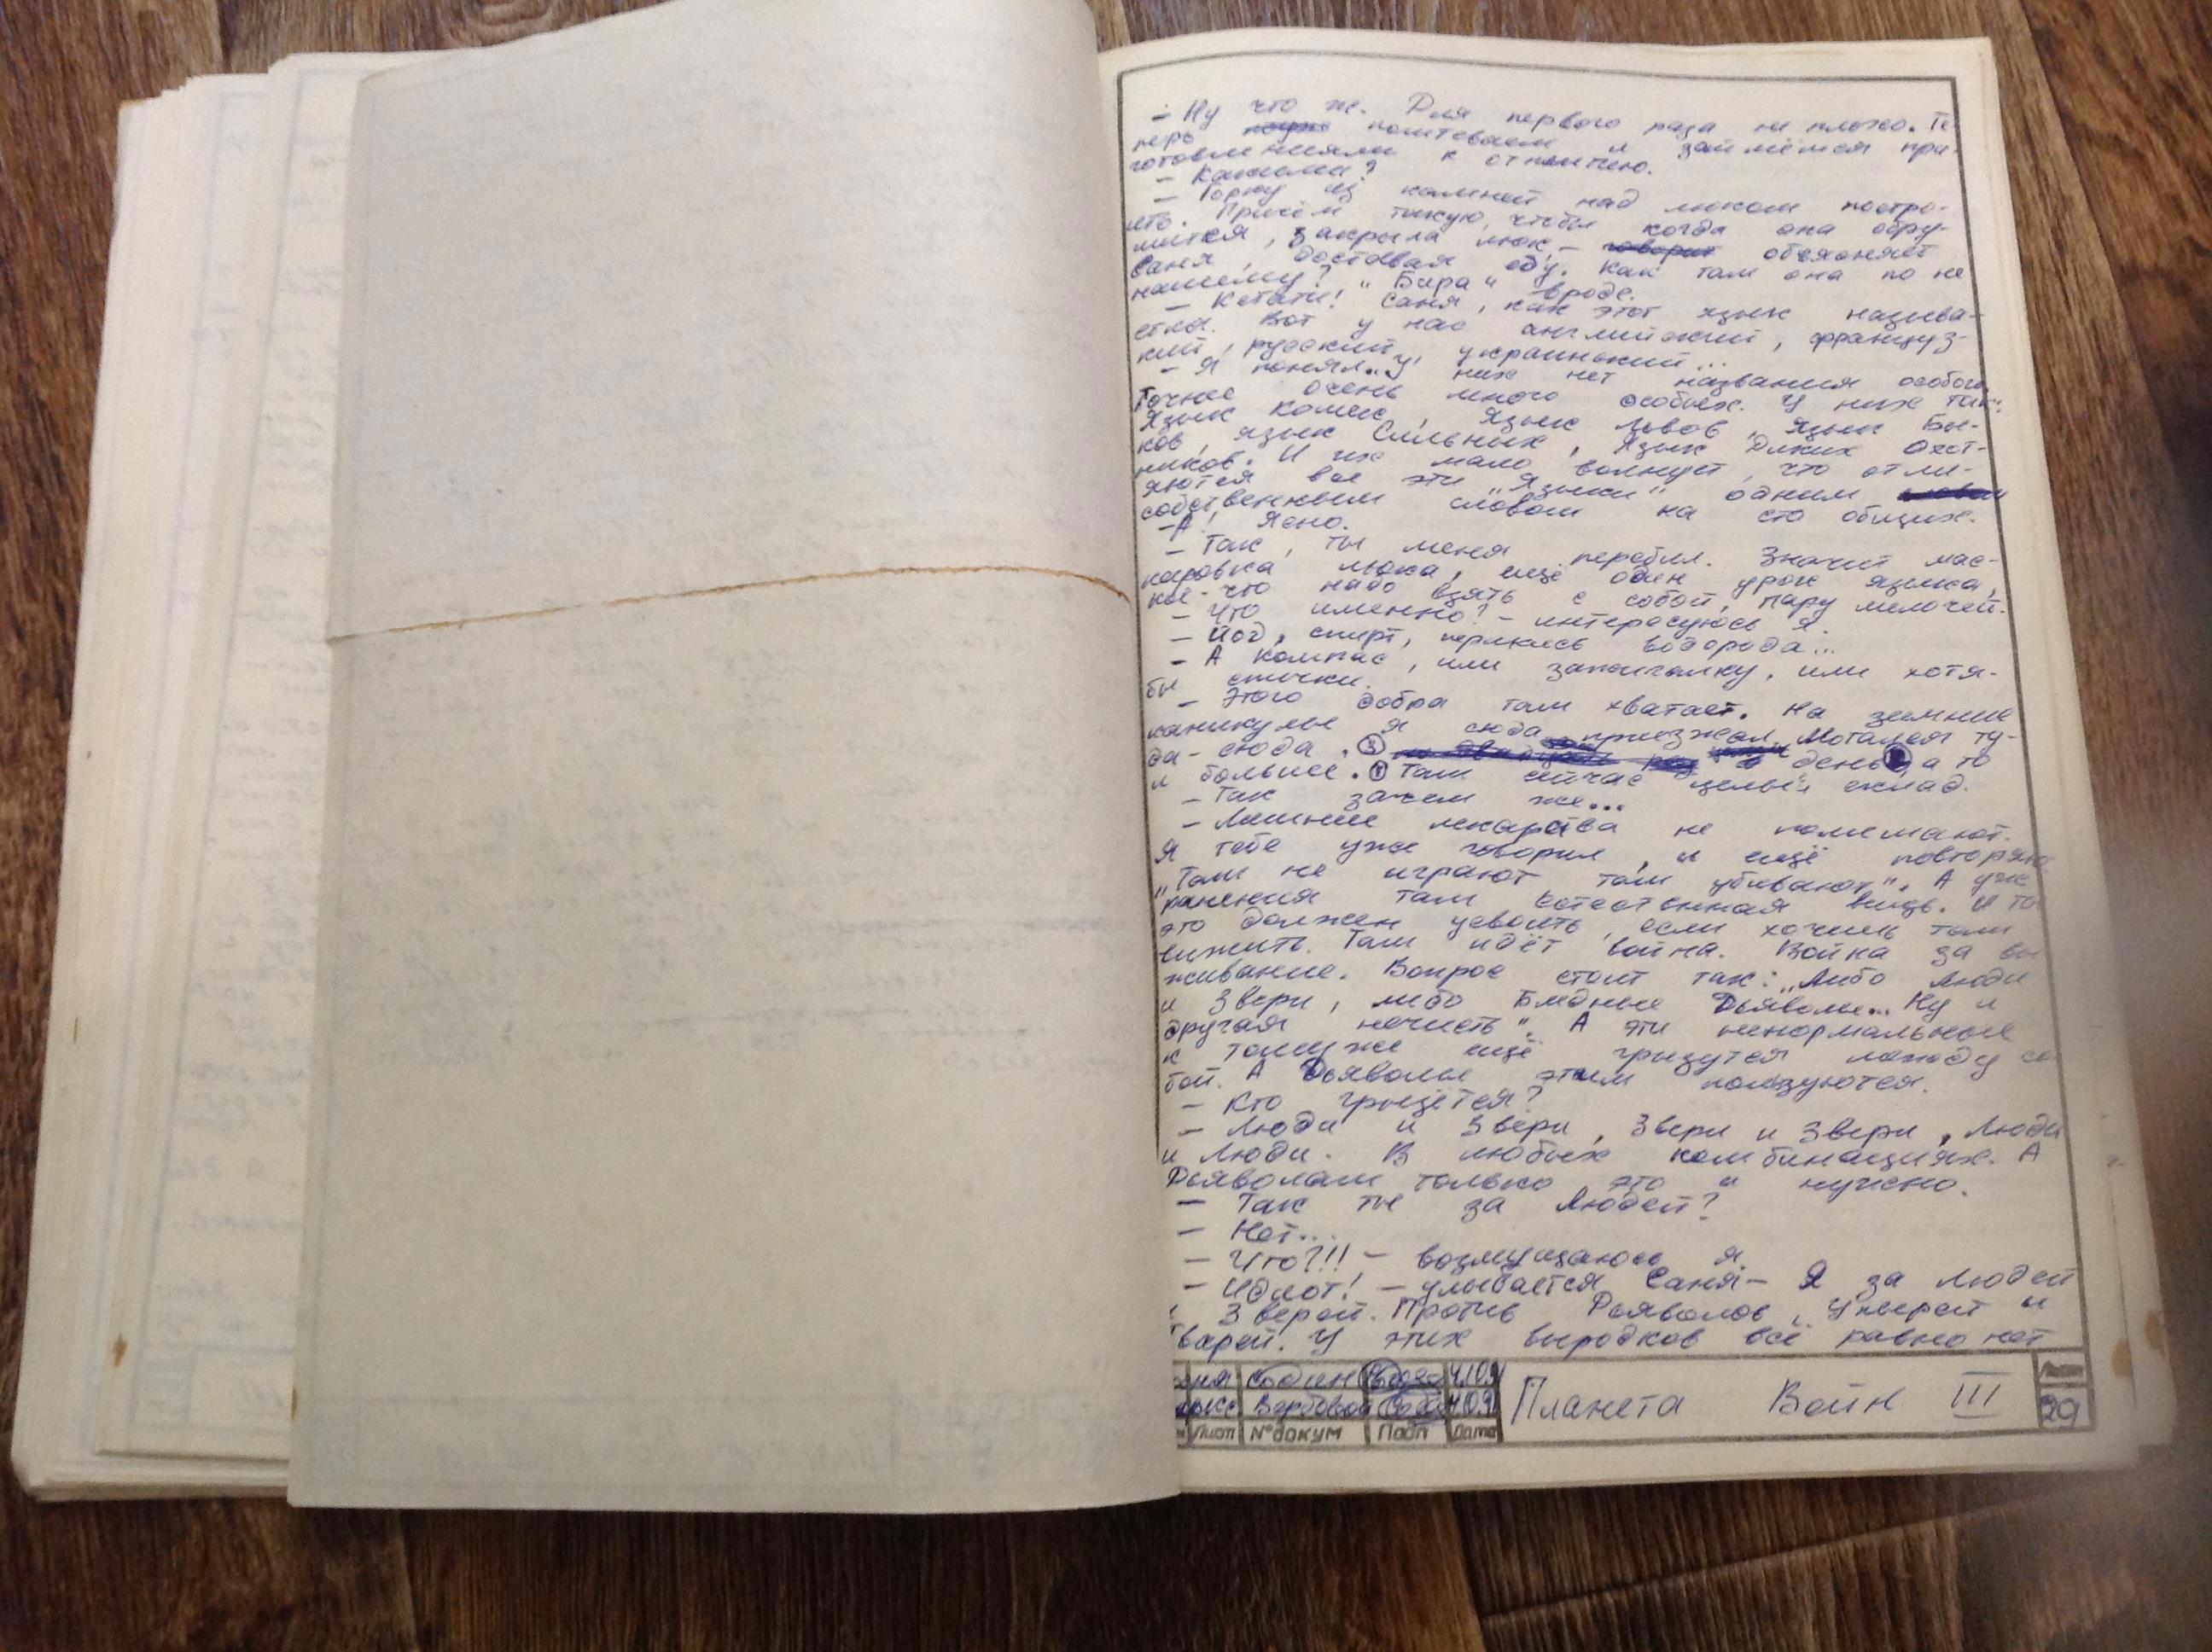 - Ну что же. Для первого раза не плохо. Те-
перь поштеваем и займёмся при-
готовлениями к отплытию.
- Какими?
- Горку из камней над люком постро-
ить. Причём такую, чтобы когда она обру-
шится, закрыла люк, - говорит объясняет
Саня, доставая еду. Как там она по не
нашему? „Бира" вроде.
- Кстати! Саня, как этот язык называ-
ется. Вот у нас английский, француз-
кий, русский, украинский...
- Я понял. У них нет названия особого.
Точнее очень много особых. У них так:
Язык Кошек, Язык Львов, Язык Бы-
ков, язык Сильных, Язык Диких Охот-
ников. И их мало волнует, что отли-
яются все эти „Языки" одним
собственным словом на сто общих.
- А! Ясно.
- Так, ты меня перебил. Значит мас-
кировка люка, ещё один урок языка,
кое-что надо взять с собой, пару мелочей.
- Что именно? - интересуюсь я.
- Йод, спирт, перикись водорода...
- А компас, или зажигалку, или хотя-
бы спички.
- Этого добра там хватает. На зимние
каникулы я сюда приезжал. Мотался ту-
да-сюда. ③ день а то
и больше. ① Там сейчас целый склад.
- Так зачем же...
- Лишние лекарства не помешают.
Я тебе уже говорил, и ещё повторяю
„Там не играют там убивают". А уж
ранения там естественная вещь. И ты
это должен усвоить, если хочешь там
выжить. Там идёт война. Война за вы
живание. Вопрос стоит так: „Либо Люди
и Звери, либо Бледные Дьяволы... Ну и
другая нечисть". А эти ненормальные
к томуже ещё грызутся между со
бой. А Дьяволы этим пользуются.
- Кто грызётся?
- Люди и Звери, Звери и Звери, Люди
и Люди. В любых комбинациях. А
Дьяволам только это и нужно.
- Так ты за Людей?
- Нет...
- Что?!!! - возмущаюсь я.
- Идиот! - улыбается Саня - Я за Людей
и Зверей. Против Дьяволов, Упырей и
тварей. У этих выродков всё равно нет
Вербовой
Лист №докум Подп Дата
Планета Войн III
Лист
29